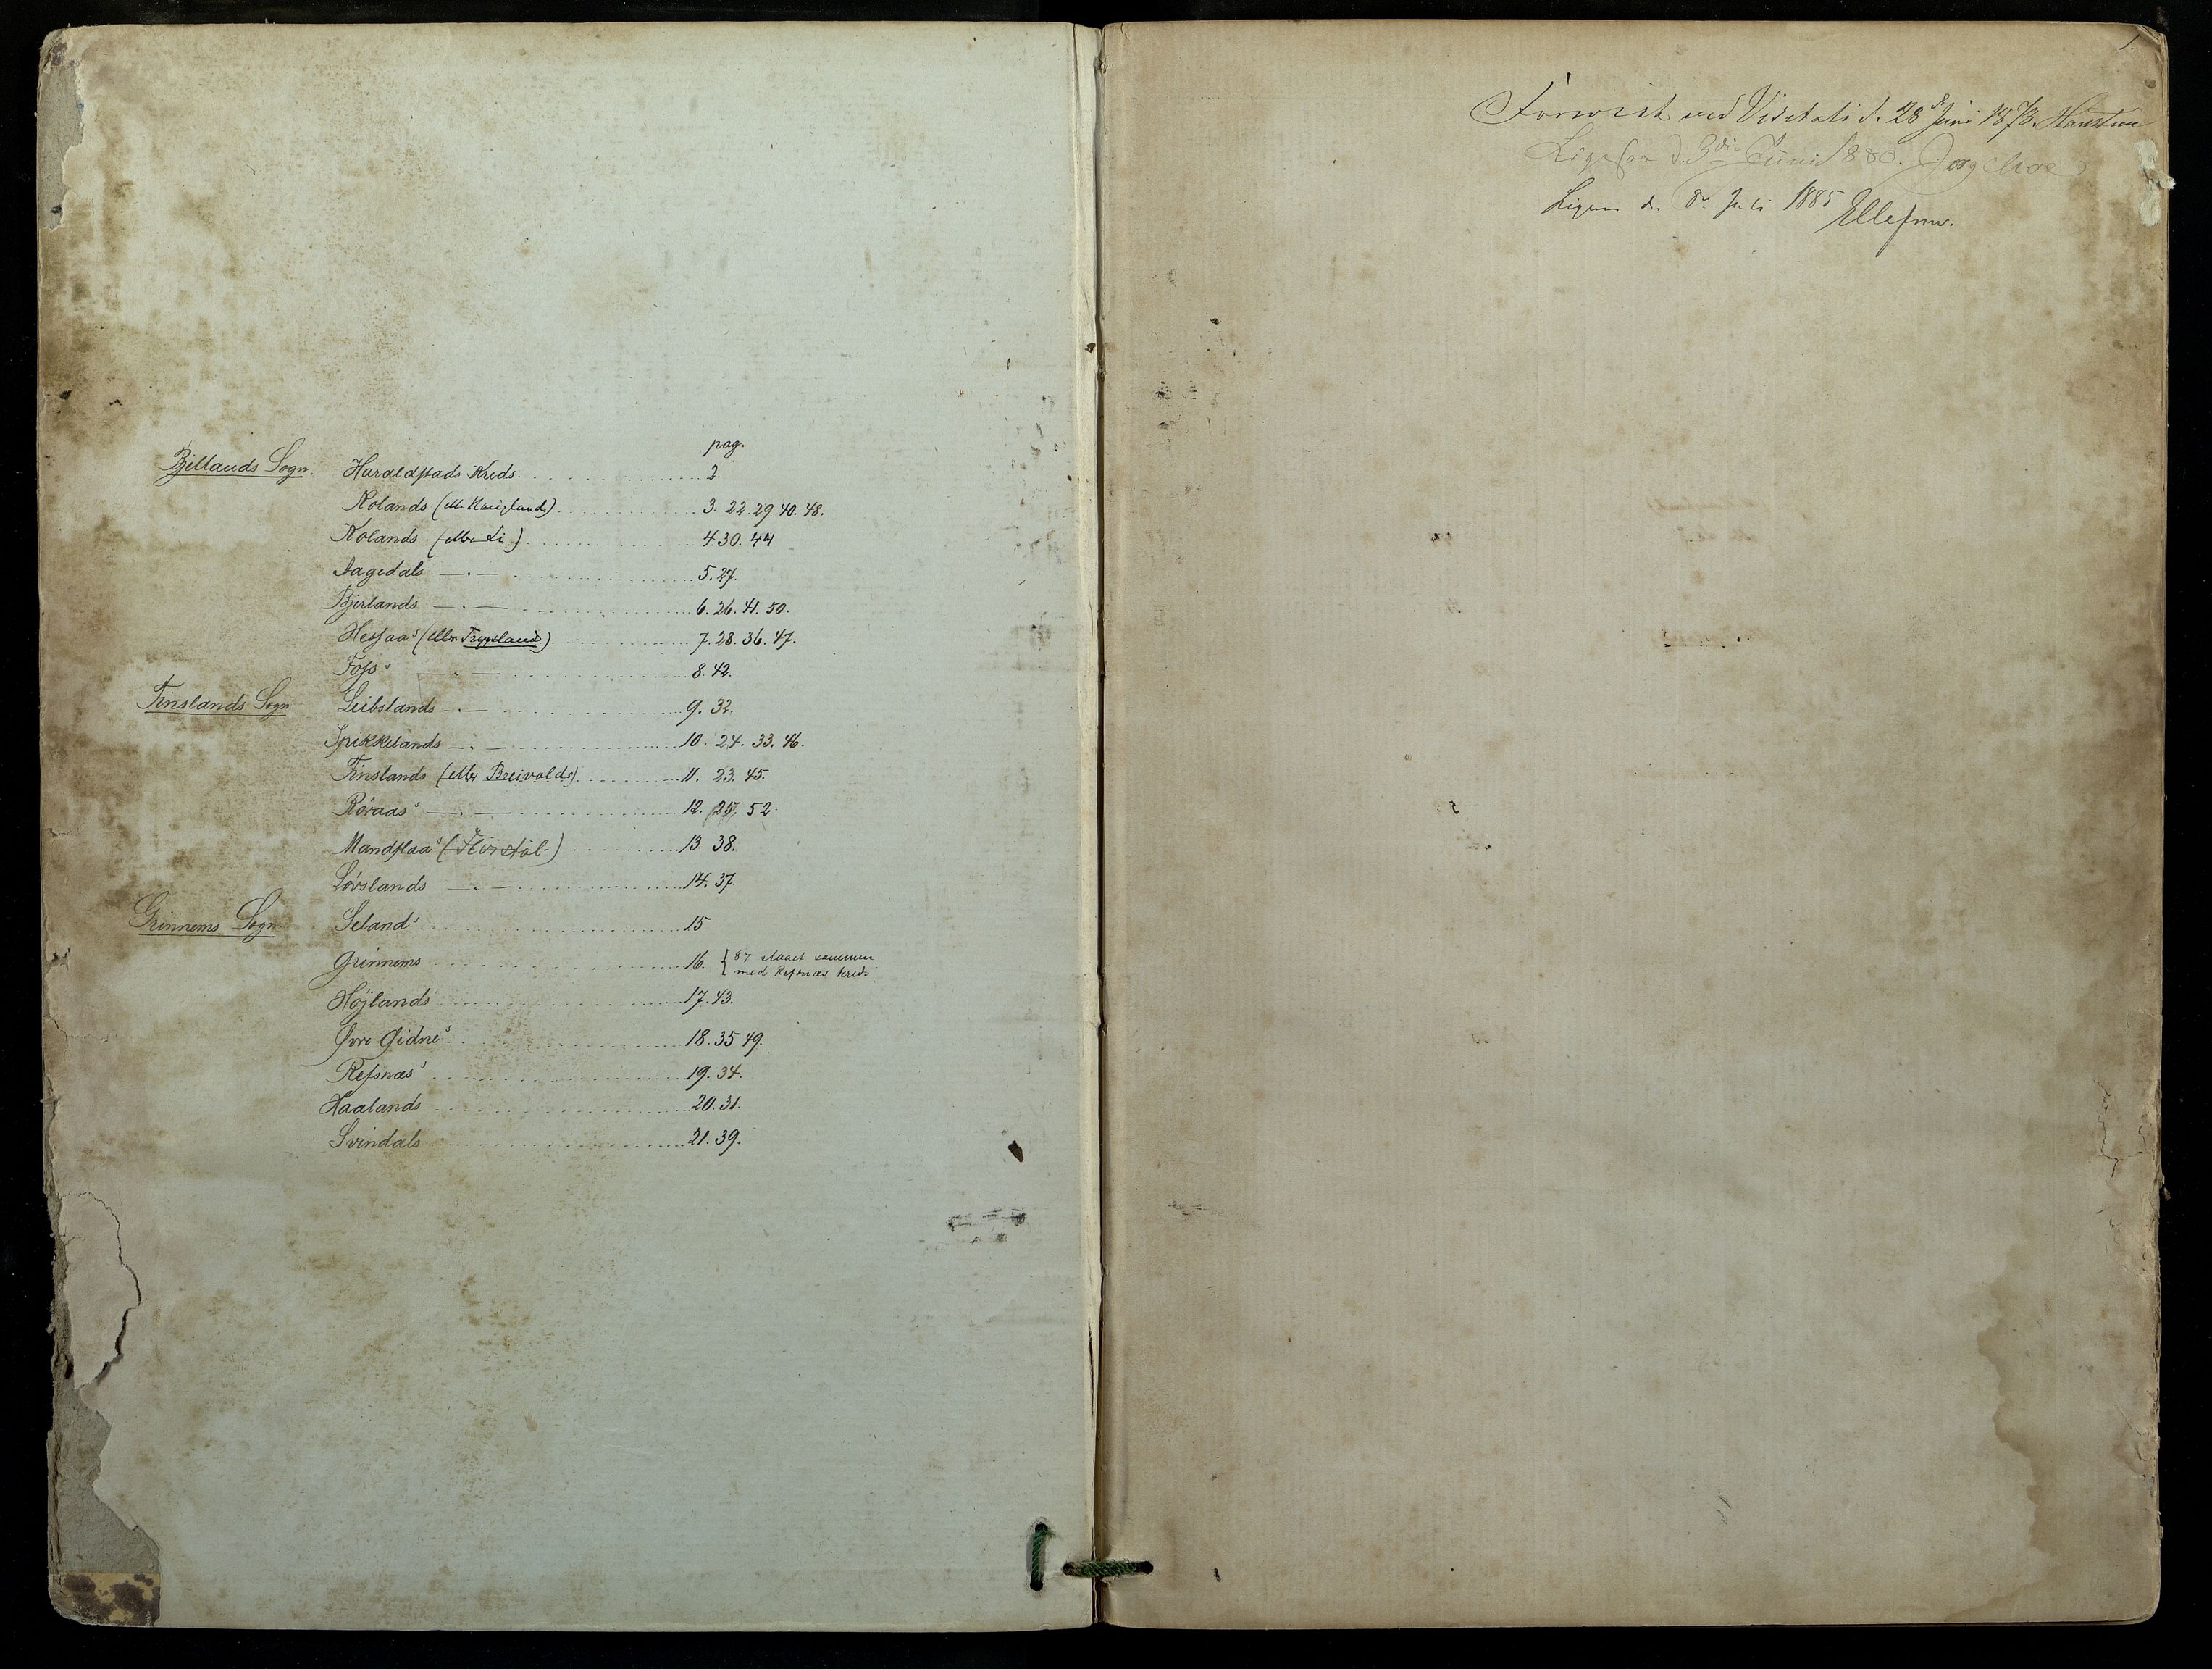 pag.
Bjellands Sogn Haraldstads Kreds. 2.
Rolands 3. 22. 29. 40. 48.
Kolands (eller Li) 4. 30. 44
Aagedals — . — 5. 27.
Bjerlands — . — 6. 26. 41. 50.
Hessaas (eller Trygsland) 7. 28. 36. 47.
Foss' — 8. 42.
Finslands Sogn Leibslands — . — 9. 32.
Spikkelands — . — 10. 24. 33. 46.
Finslands (eller Breivolds) 11. 23. 45.
Röraas' — . — 12. 25. 52.
Mandflaa' 13. 38.
Lövslands — . — 14. 37.
Grinnems Sogn Seland' 15
Grinnems 16. { 87 slaaet sammen
med Refsnæs Kreds
Höjlands 17. 43.
Øvre Øidne' 18. 35 49.
Refsnæs' 19. 34.
Haalands 20. 31.
Svindals 21. 39.
1.
Forevist ved Visitats d. 28de Juni 1873.
Ligesaa d. 3die Juni 1880. Jørg Moe
Ligesaa d. 8de Juli 1885